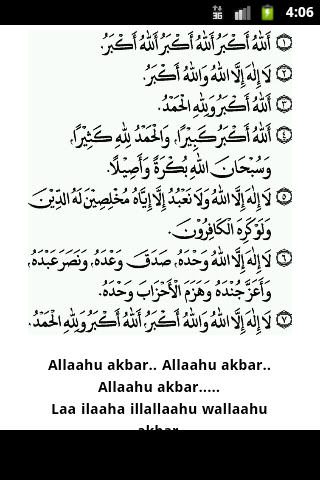 36
4:06
١ اَللّٰهُ أَكْبَرُ اَللّٰهُ أَكْبَرُ اَللّٰهُ أَكْبَرُ.
٢ لَا إِلٰهَ إِلَّا اللّٰهُ وَاللّٰهُ أَكْبَرُ.
٣ اَللّٰهُ أَكْبَرُ وَلِلّٰهِ الْحَمْدُ.
٤ اَللّٰهُ أَكْبَرُ كَبِيْرًا، وَالْحَمْدُ لِلّٰهِ كَثِيْرًا،
وَسُبْحَانَ اللّٰهِ بُكْرَةً وَأَصِيْلًا.
٥ لَا إِلٰهَ إِلَّا اللّٰهُ وَلَا نَعْبُدُ إِلَّا إِيَّاهُ مُخْلِصِيْنَ لَهُ الدِّيْنَ
وَلَوْ كَرِهَ الْكَافِرُوْنَ.
٦ لَا إِلٰهَ إِلَّا اللّٰهُ وَحْدَهُ، صَدَقَ وَعْدَهُ، وَنَصَرَ عَبْدَهُ،
وَأَعَزَّ جُنْدَهُ وَهَزَمَ الْأَحْزَابَ وَحْدَهُ.
٧ لَا إِلٰهَ إِلَّا اللّٰهُ وَاللّٰهُ أَكْبَرُ، اَللّٰهُ أَكْبَرُ وَلِلّٰهِ الْحَمْدُ.
Allaahu akbar.. Allaahu akbar..
Allaahu akbar.....
Laa ilaaha illallaahu wallaahu
akbar